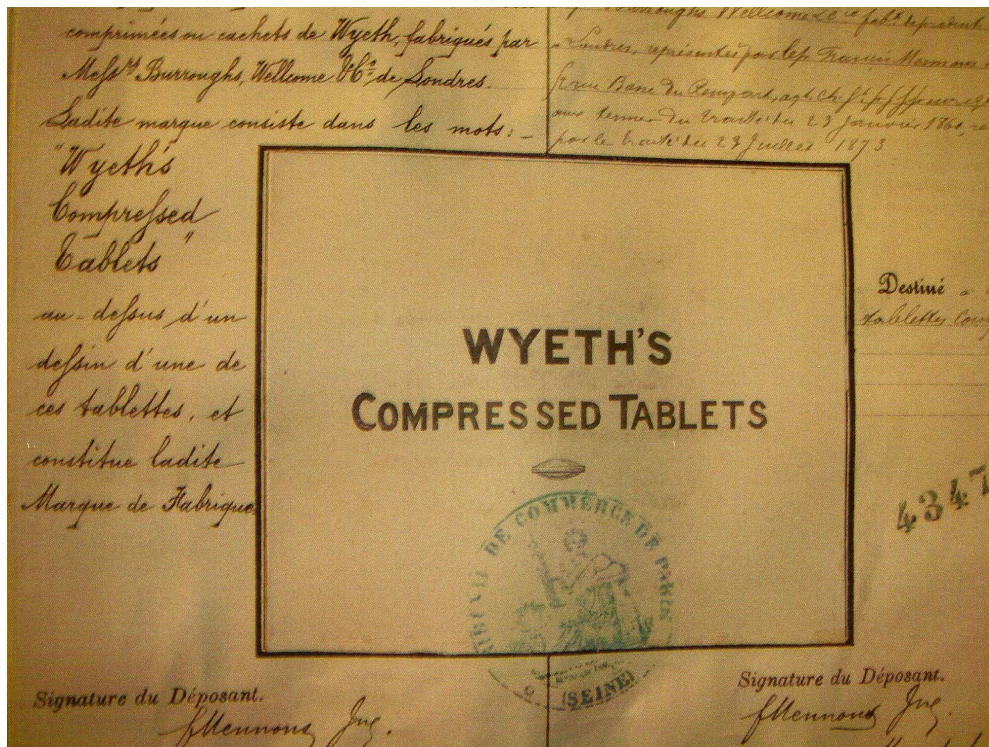 comprimées ou cachets de Wyeth, fabriqués par
Messrs Burroughs, Wellcome & Co de Londres.
Ladite marque consiste dans les mots:-
"Wyeth's
Compressed
Tablets"
au-dessus d'un
dessin d'une de
ces tablettes, et
constitue ladite
Marque de Fabrique
Burroughs Wellcome & Co
Londres, représentés par
aux termes du traité du 23 Janvier 1860,
par le traité du 23 Juillet 1873
WYETH'S
COMPRESSED TABLETS
TRIBUNAL DE COMMERCE DE PARIS
(SEINE)
Destiné à
tablettes
4347
Signature du Déposant.
fMennons Jne.
Signature du Déposant.
fMennons Jne.